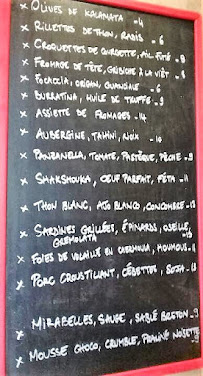 * OLIVES DE KALAMATA -4
* RILLETTES DE THON, RADIS -6
* CROQUETTES DE COURGETTE, AIL FUMÉ -8
* FROMAGE DE TÊTE, GRIBICHE À LA VIÊT -8
* FOCACCIA, ORIGAN, GUANCIALE -6
* BURRATINA, HUILE DE TRUFFE -9
* ASSIETTE DE FROMAGES -14
* AUBERGINE, TAHINI, NOIX -10
* PANZANELLA, TOMATE, PASTÈQUE, PÊCHE -9
* SHAKSHOUKA, OEUF PARFAIT, FÉTA -11
* THON BLANC, AJO BLANCO, CONCOMBRE -13
* SARDINES GRILLÉES, ÉPINARDS, OSEILLE,
GREMOLATA
* FOIES DE VOLAILLE EN CHERMOULA, HOUMOUS -11
* PORC CROUSTILLANT, CÉBETTES, SOJA -13
* MIRABELLES, SAUGE, SABLÉ BRETON -9
* MOUSSE CHOCO, CRUMBLE, PRALINÉ NOISETTE